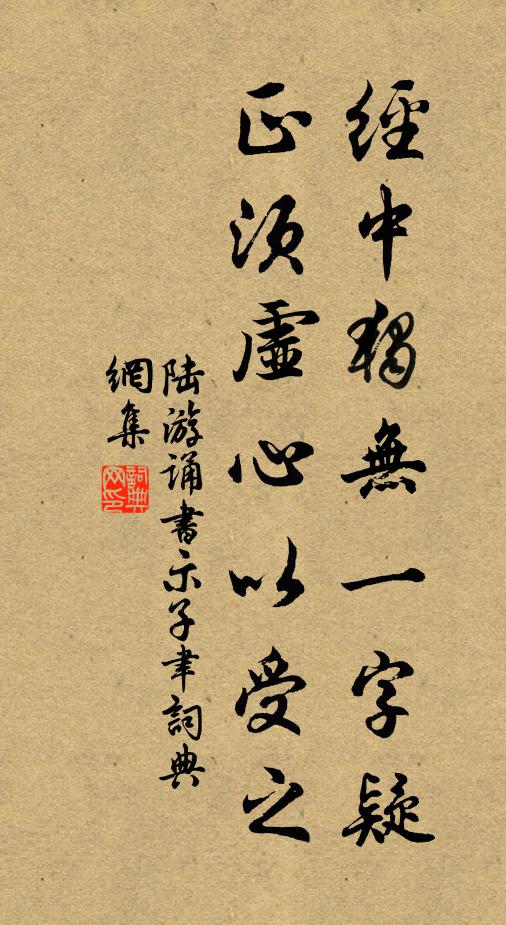 經中獨無一字疑
正須虛心以受之
陆游誦書示子聿詞典
網集
詞典
网印